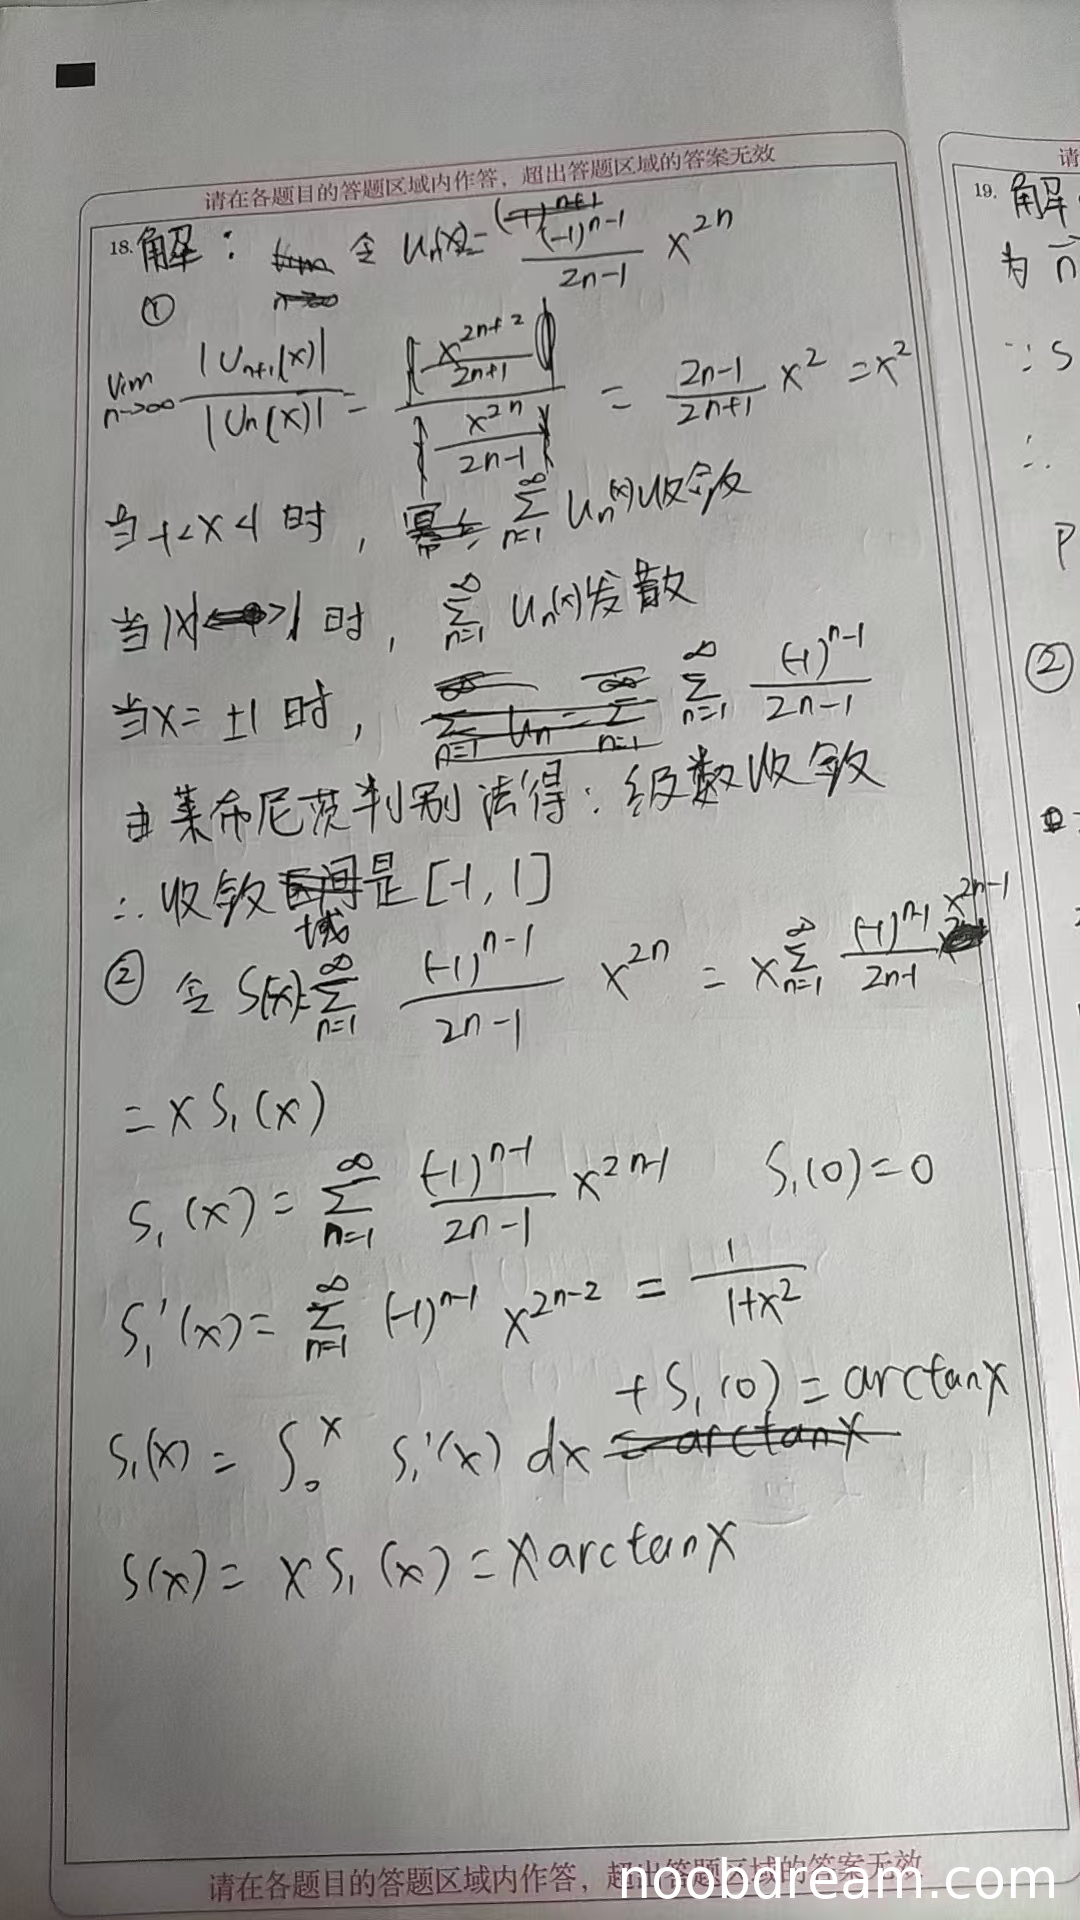 请在各题目的答题区域内作答，超出答题区域的答案无效
18. 解： 令 Uₙ(x)= (-1)^{n-1}/(2n-1) x^{2n}
①
lim_{n→∞} |U_{n+1}(x)|/|Uₙ(x)| = (x^{2n+2}/(2n+1))/(x^{2n}/(2n-1)) = (2n-1)/(2n+1) x² = x²
当-1<x<1时，∑_{n=1}^{∞} Uₙ(x)收敛
当|x|>1时，∑_{n=1}^{∞} Uₙ(x)发散
当x=±1时，∑_{n=1}^{∞} (-1)^{n-1}/(2n-1)
由莱布尼茨判别法得：级数收敛
∴收敛域是[-1,1]
② 令 S(x)=∑_{n=1}^{∞} (-1)^{n-1}/(2n-1) x^{2n} = x∑_{n=1}^{∞} (-1)^{n-1}/(2n-1) x^{2n-1}
= x S₁(x)
S₁(x) = ∑_{n=1}^{∞} (-1)^{n-1}/(2n-1) x^{2n-1} S₁(0)=0
S₁'(x) = ∑_{n=1}^{∞} (-1)^{n-1} x^{2n-2} = 1/(1+x²)
S₁(x) = ∫₀^x S₁'(x) dx + S₁(0) = arctanx
S(x) = x S₁(x) = x arctanx
请在各题目的答题区域内作答，超出答题区域的答案无效
请
19. 解
为 n
∵ S
∴
P
②
noobdream.com